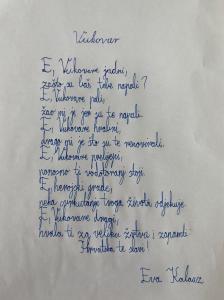 Vukovar
E, Vukovare jadni,
zašto su baš tebe napali?
E, Vukovare pali,
žao mi je jer su te napali.
E, Vukovare hrabri,
drago mi je što su te renovirali.
E, Vukovare prelijepi,
ponosno ti vodotoranj stoji.
E, herojski grade,
neka pjesma tvoga života odjekuje.
E, Vukovare dragi,
hvala ti za veliku žrtvu i zapamti
Hrvatska te slavi!
Eva Kalauz